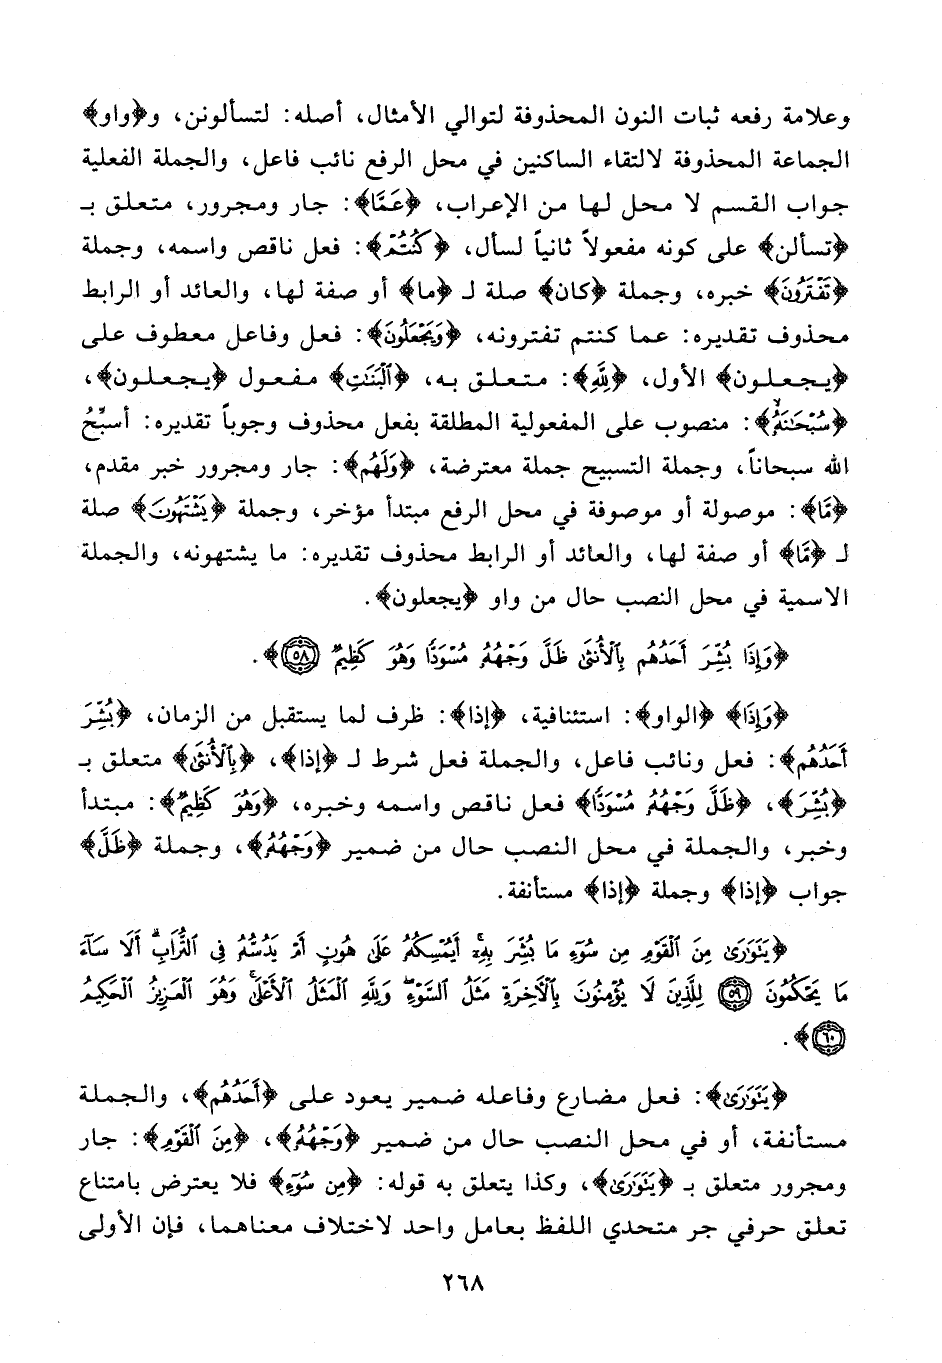 وعلامة رفعه ثبات النون المحذوفة لتوالي الأمثال، أصله: لتسألونن، و﴿واو﴾
الجماعة المحذوفة لالتقاء الساكنين في محل الرفع نائب فاعل، والجملة الفعلية
جواب القسم لا محل لها من الإعراب، ﴿عَمَّا﴾: جار ومجرور، متعلق بـ
﴿تسألن﴾ على كونه مفعولاً ثانياً لسأل، ﴿كُنْتُمْ﴾: فعل ناقص واسمه، وجملة
﴿تَفْتَرُونَ﴾ خبره، وجملة ﴿كان﴾ صلة لـ ﴿ما﴾ أو صفة لها، والعائد أو الرابط
محذوف تقديره: عما كنتم تفترونه، ﴿وَيَجْعَلُونَ﴾: فعل وفاعل معطوف على
﴿يجعلون﴾ الأول، ﴿لِلَّهِ﴾: متعلق به، ﴿ٱلْبَنَٰتِ﴾ مفعول ﴿يجعلون﴾،
﴿سُبْحَٰنَهُۥ﴾: منصوب على المفعولية المطلقة بفعل محذوف وجوباً تقديره: أسبِّحُ
الله سبحاناً، وجملة التسبيح جملة معترضة، ﴿وَلَهُم﴾: جار ومجرور خبر مقدم،
﴿مَّا﴾: موصولة أو موصوفة في محل الرفع مبتدأ مؤخر، وجملة ﴿يَشْتَهُونَ﴾ صلة
لـ ﴿مَّا﴾ أو صفة لها، والعائد أو الرابط محذوف تقديره: ما يشتهونه، والجملة
الاسمية في محل النصب حال من واو ﴿يجعلون﴾.
﴿وَإِذَا بُشِّرَ أَحَدُهُم بِٱلْأُنثَىٰ ظَلَّ وَجْهُهُۥ مُسْوَدًّا وَهُوَ كَظِيمٌ ٥٨﴾.
﴿وَإِذَا﴾ ﴿الواو﴾: استئنافية، ﴿إذا﴾: ظرف لما يستقبل من الزمان، ﴿بُشِّرَ
أَحَدُهُم﴾: فعل ونائب فاعل، والجملة فعل شرط لـ ﴿إذا﴾، ﴿بِٱلْأُنثَىٰ﴾ متعلق بـ
﴿بُشِّرَ﴾، ﴿ظَلَّ وَجْهُهُۥ مُسْوَدًّا﴾ فعل ناقص واسمه وخبره، ﴿وَهُوَ كَظِيمٌ﴾: مبتدأ
وخبر، والجملة في محل النصب حال من ضمير ﴿وَجْهُهُۥ﴾، وجملة ﴿ظَلَّ﴾
جواب ﴿إذا﴾ وجملة ﴿إذا﴾ مستأنفة.
﴿يَتَوَٰرَىٰ مِنَ ٱلْقَوْمِ مِن سُوٓءِ مَا بُشِّرَ بِهِۦٓ ۚ أَيُمْسِكُهُۥ عَلَىٰ هُونٍ أَمْ يَدُسُّهُۥ فِى ٱلتُّرَابِ ۗ أَلَا سَآءَ
مَا يَحْكُمُونَ ٥٩ لِلَّذِينَ لَا يُؤْمِنُونَ بِٱلْـَٔاخِرَةِ مَثَلُ ٱلسَّوْءِ ۖ وَلِلَّهِ ٱلْمَثَلُ ٱلْأَعْلَىٰ ۚ وَهُوَ ٱلْعَزِيزُ ٱلْحَكِيمُ
٦٠﴾.
﴿يَتَوَٰرَىٰ﴾: فعل مضارع وفاعله ضمير يعود على ﴿أَحَدُهُم﴾، والجملة
مستأنفة، أو في محل النصب حال من ضمير ﴿وَجْهُهُۥ﴾، ﴿مِنَ ٱلْقَوْمِ﴾: جار
ومجرور متعلق بـ ﴿يَتَوَٰرَىٰ﴾، وكذا يتعلق به قوله: ﴿مِن سُوٓءِ﴾ فلا يعترض بامتناع
تعلق حرفي جر متحدي اللفظ بعامل واحد لاختلاف معناهما، فإن الأولى
٢٦٨